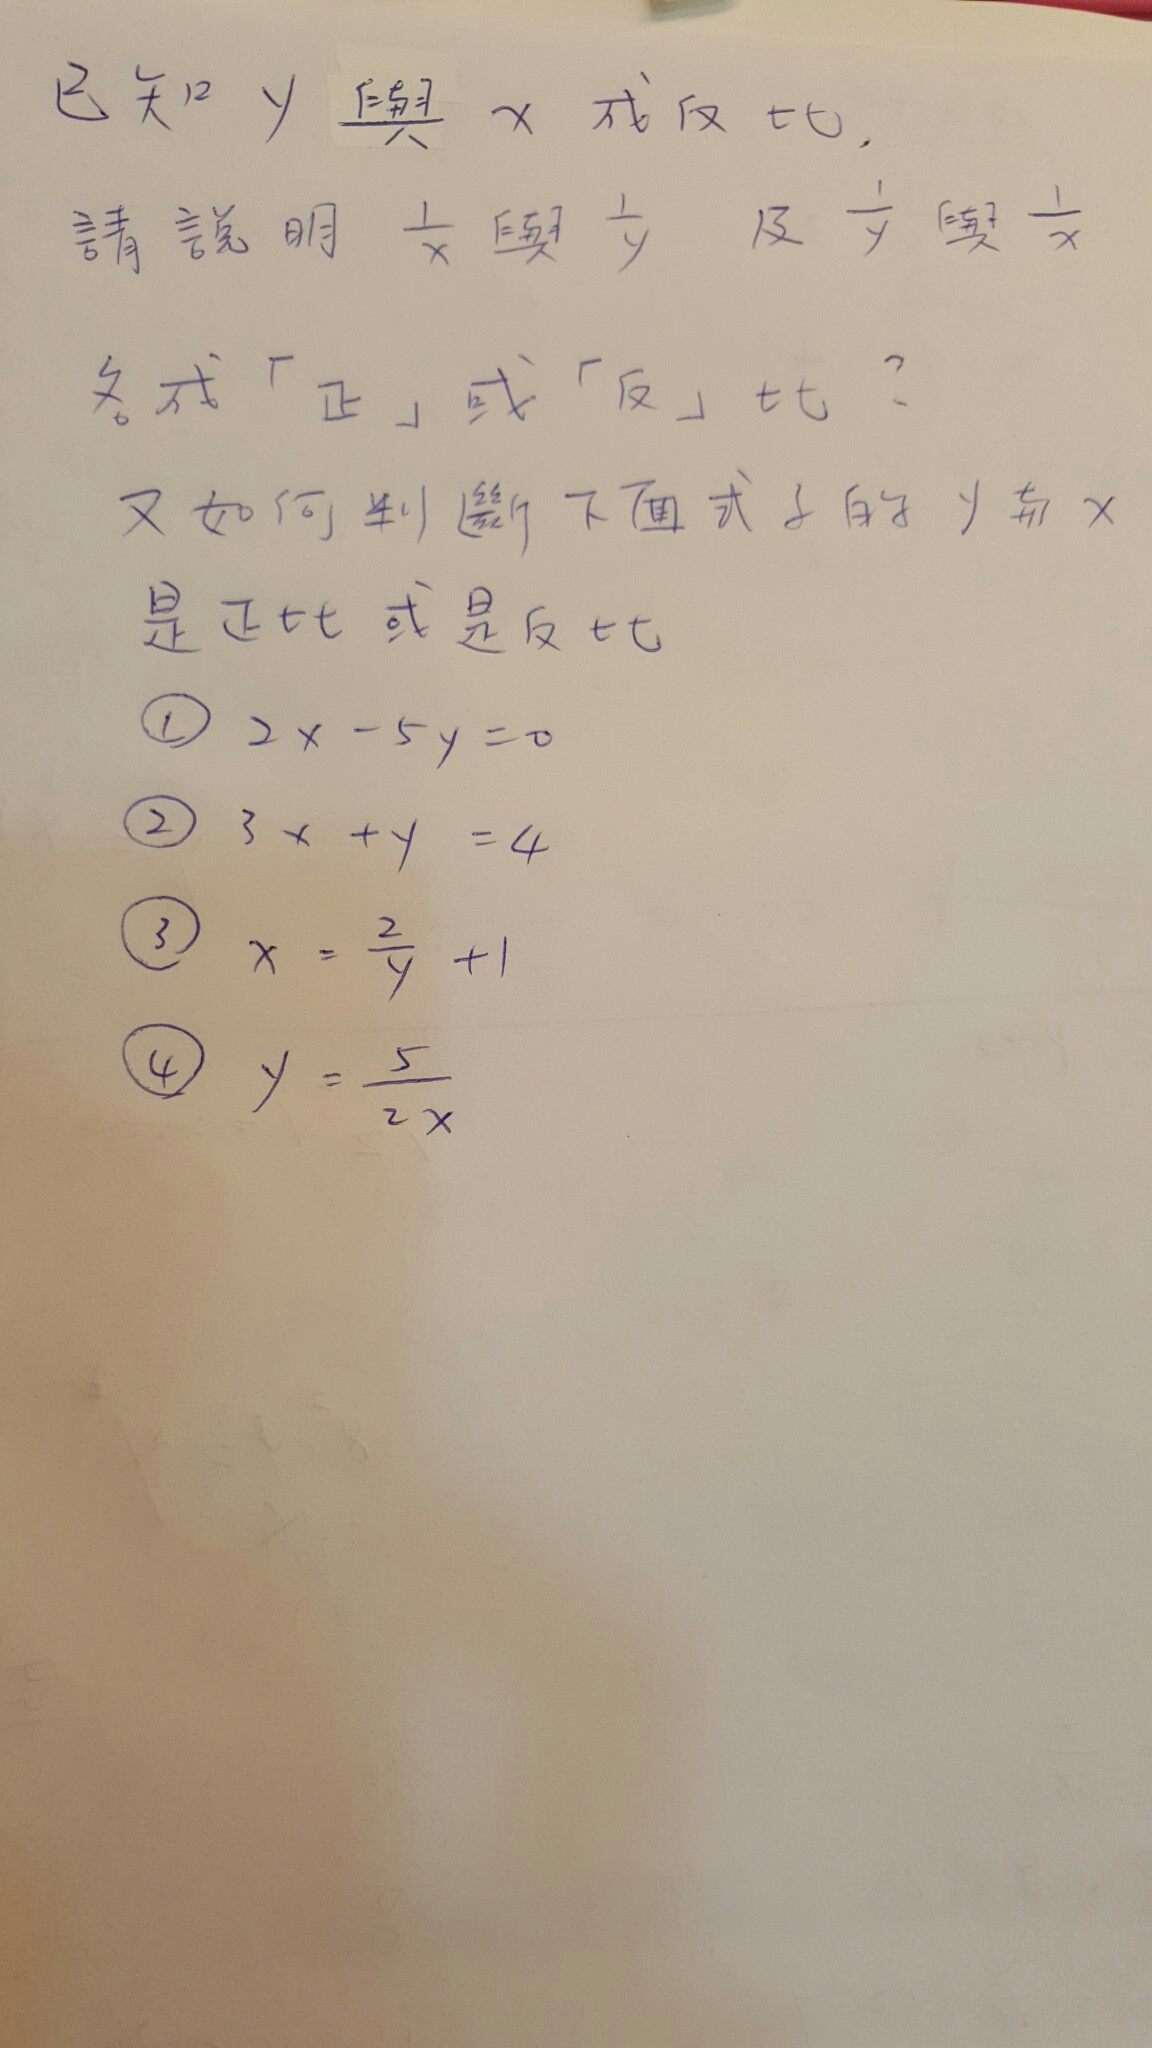 已知 y 與 x 成反比,
請說明 1/x 與 1/y 及 1/y 與 1/x
各成「正」或「反」比?
又如何判斷下面式子的 y 与 x
是正比或是反比
① 2x - 5y = 0
② 3x + y = 4
③ x = 2/y + 1
④ y = 5/2x